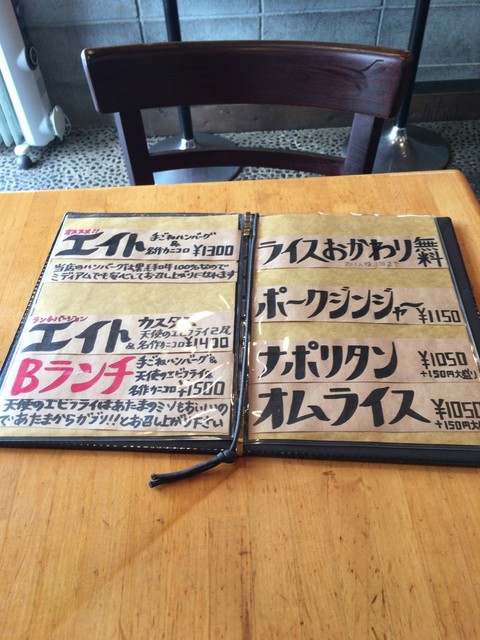 オススメ!!
エイト 手ごねハンバーグ
&
名作カニコロ ¥1300
当店のハンバーグは黒毛和牛100%なので
ミディアムでも安心してお召し上がりになれます
ランチバージョン
エイト カスタム
天使のエビフライ2尾
&名作カニコロ ¥1430
Bランチ 手ごねハンバーグ&
天使のエビフライ&
名作カニコロ ¥1580
天使のエビフライはあたまのミソもおいしいの
であたまからガブリ!!とお召し上がり下さい
ライスおかわり 無料
ポークジンジャー ¥1150
ナポリタン ¥1050
+150円大盛り
オムライス ¥1050
+150円大